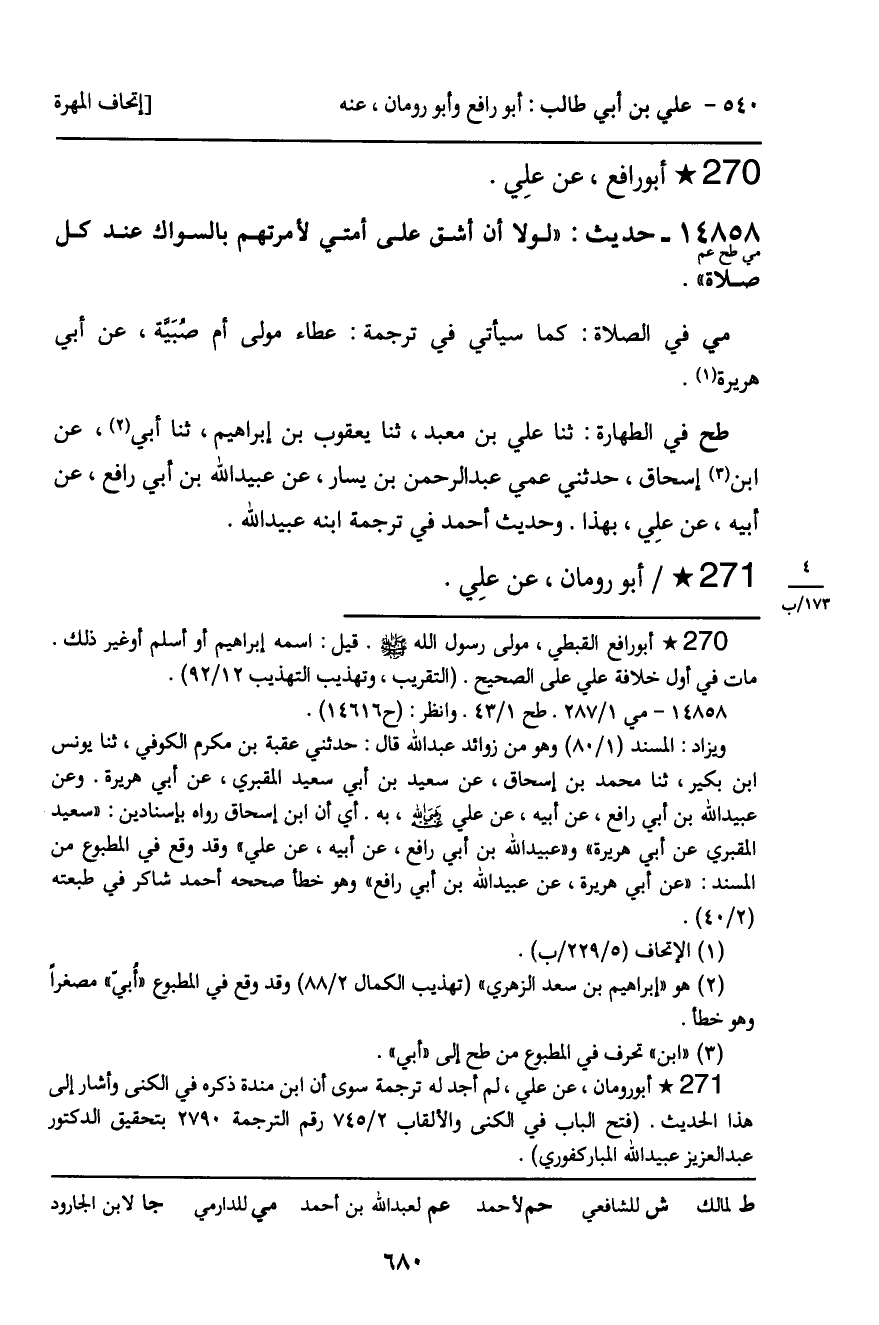 ٥٤٠ - علي بن أبي طالب : أبو رافع وأبو رومان ، عنه [إتحاف المهرة
270 ★ أبورافع ، عن علي .
١٤٨٥٨ ـ حديث : «لـولا أن أشـق علـى أمتـي لأمرتهـم بالسـواك عنـد كـل
مي طح عم
صـلاة» .
مي في الصلاة : كما سيأتي في ترجمة : عطاء مولى أم صُبَيَّة ، عن أبي
هريرة(١) .
طح في الطهارة : ثنا علي بن معبد ، ثنا يعقوب بن إبراهيم ، ثنا أبي(٢) ، عن
ابن(٣) إسحاق ، حدثني عمي عبدالرحمن بن يسار ، عن عبيدالله بن أبي رافع ، عن
أبيه ، عن علي ، بهذا . وحديث أحمد في ترجمة ابنه عبيدالله .
271 ★ / أبو رومان ، عن علي .
٤
١٧٣/ب
270 ★ أبورافع القبطي ، مولى رسول الله ﷺ . قيل : اسمه إبراهيم أو أسلم أوغير ذلك .
مات في أول خلافة علي على الصحيح . (التقريب ، وتهذيب التهذيب ٩٢/١٢) .
١٤٨٥٨ - مي ٢٨٧/١ . طح ٤٣/١ . وانظر : (ح١٤٦١٦) .
ويزاد : المسند (٨٠/١) وهو من زوائد عبدالله قال : حدثني عقبة بن مكرم الكوفي ، ثنا يونس
ابن بكير ، ثنا محمد بن إسحاق ، عن سعيد بن أبي سعيد المقبري ، عن أبي هريرة . وعن
عبيدالله بن أبي رافع ، عن أبيه ، عن علي ، به . أي أن ابن إسحاق رواه بإسنادين : «سعيد
المقبري عن أبي هريرة» و«عبيدالله بن أبي رافع ، عن أبيه ، عن علي» وقد وقع في المطبوع من
المسند : «عن أبي هريرة ، عن عبيدالله بن أبي رافع» وهو خطأ صححه أحمد شاكر في طبعته
(٤٠/٢) .
(١) الإتحاف (٢٢٩/٥/ب) .
(٢) هو «إبراهيم بن سعد الزهري» (تهذيب الكمال ٨٨/٢) وقد وقع في المطبوع «أُبيّ» مصغراً
وهو خطأ .
(٣) «ابن» تحرف في المطبوع من طح إلى «أبي» .
271 ★ أبورومان ، عن علي ، لم أجد له ترجمة سوى أن ابن مندة ذكره في الكنى وأشار إلى
هذا الحديث . (فتح الباب في الكنى والألقاب ٧٤٥/٢ رقم الترجمة ٢٧٩٠ بتحقيق الدكتور
عبدالعزيز عبيدالله المباركفوري) .
ط لمالك ش للشافعي حم لأحمد عم لعبدالله بن أحمد مي للدارمي جا لابن الجارود
٦٨٠